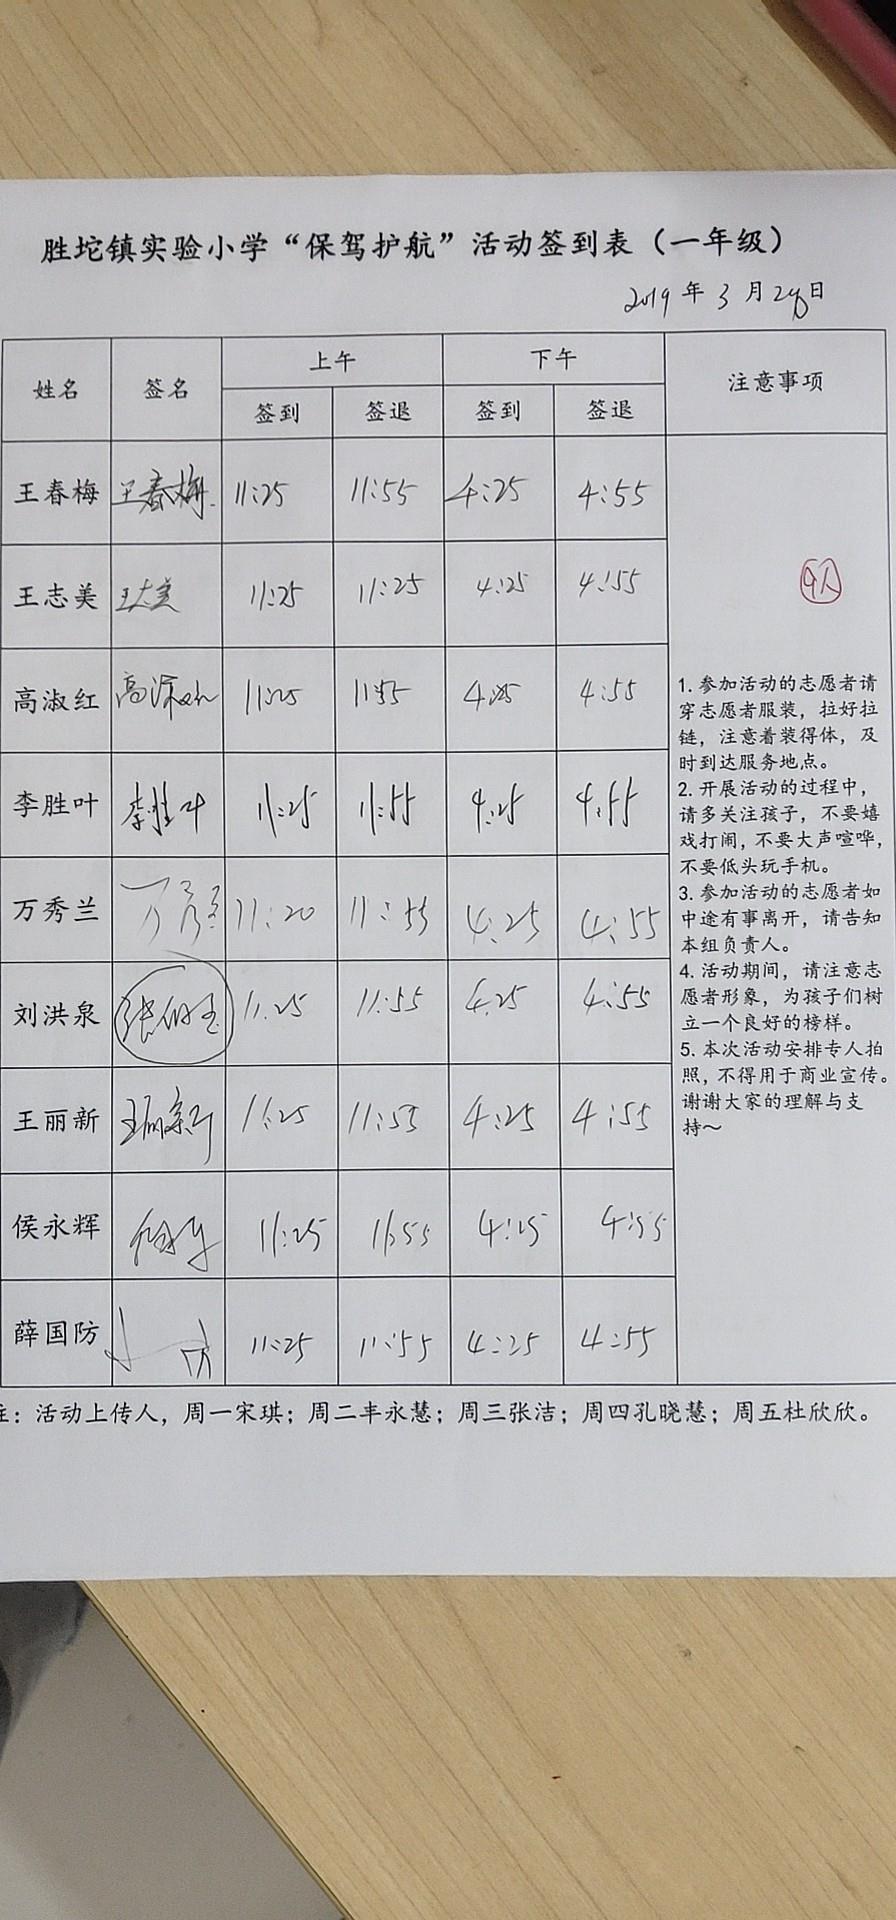 胜坨镇实验小学“保驾护航”活动签到表（一年级）
2019年3月28日
姓名 签名 上午 下午 注意事项
签到 签退 签到 签退
王春梅 王春梅 11:25 11:55 4:25 4:55
9人
王志美 王志美 11:25 11:25 4:25 4:55
高淑红 高淑红 11:25 11:55 4:25 4:55
李胜叶 李胜叶 11:25 11:55 4:25 4:55
万秀兰 11:20 11:55 4:25 4:55
刘洪泉 11:25 11:55 4:25 4:55
王丽新 王丽新 11:25 11:55 4:25 4:55
侯永辉 11:25 11:55 4:25 4:55
薛国防 11:25 11:55 4:25 4:55
1. 参加活动的志愿者请
穿志愿者服装，拉好拉
链，注意着装得体，及
时到达服务地点。
2. 开展活动的过程中，
请多关注孩子，不要嬉
戏打闹，不要大声喧哗，
不要低头玩手机。
3. 参加活动的志愿者如
中途有事离开，请告知
本组负责人。
4. 活动期间，请注意志
愿者形象，为孩子们树
立一个良好的榜样。
5. 本次活动安排专人拍
照，不得用于商业宣传。
谢谢大家的理解与支
持～
注：活动上传人，周一宋琪；周二丰永慧；周三张洁；周四孔晓慧；周五杜欣欣。